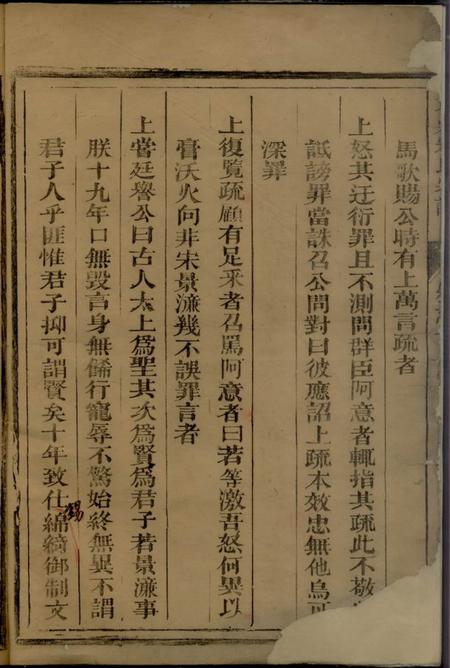 馬歌賜公時有上萬言疏者
上怒其迂衍罪且不測問群臣阿意者輒指其疏此不敬
詆謗罪當誅召公問對曰彼應詔上疏本效忠無他烏可
深罪
上復覽疏顧有足采者召罵阿意者曰若等激吾怒何異以
膏沃火向非宋景濂幾不誤罪言者
上嘗廷譽公曰古人太上爲聖其次爲賢爲君子若景濂事
朕十九年口無毀言身無偹行寵辱不驚始終無異不謂
君子人乎匪惟君子抑可謂賢矣十年致仕賜綿綺御制文